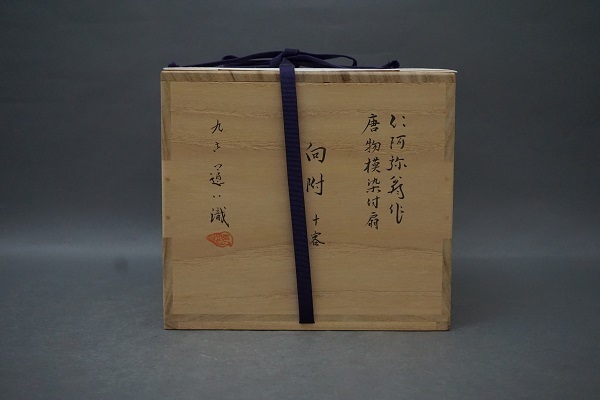 仁阿弥翁作
唐物模染付扇
向附 十客
九子道八識